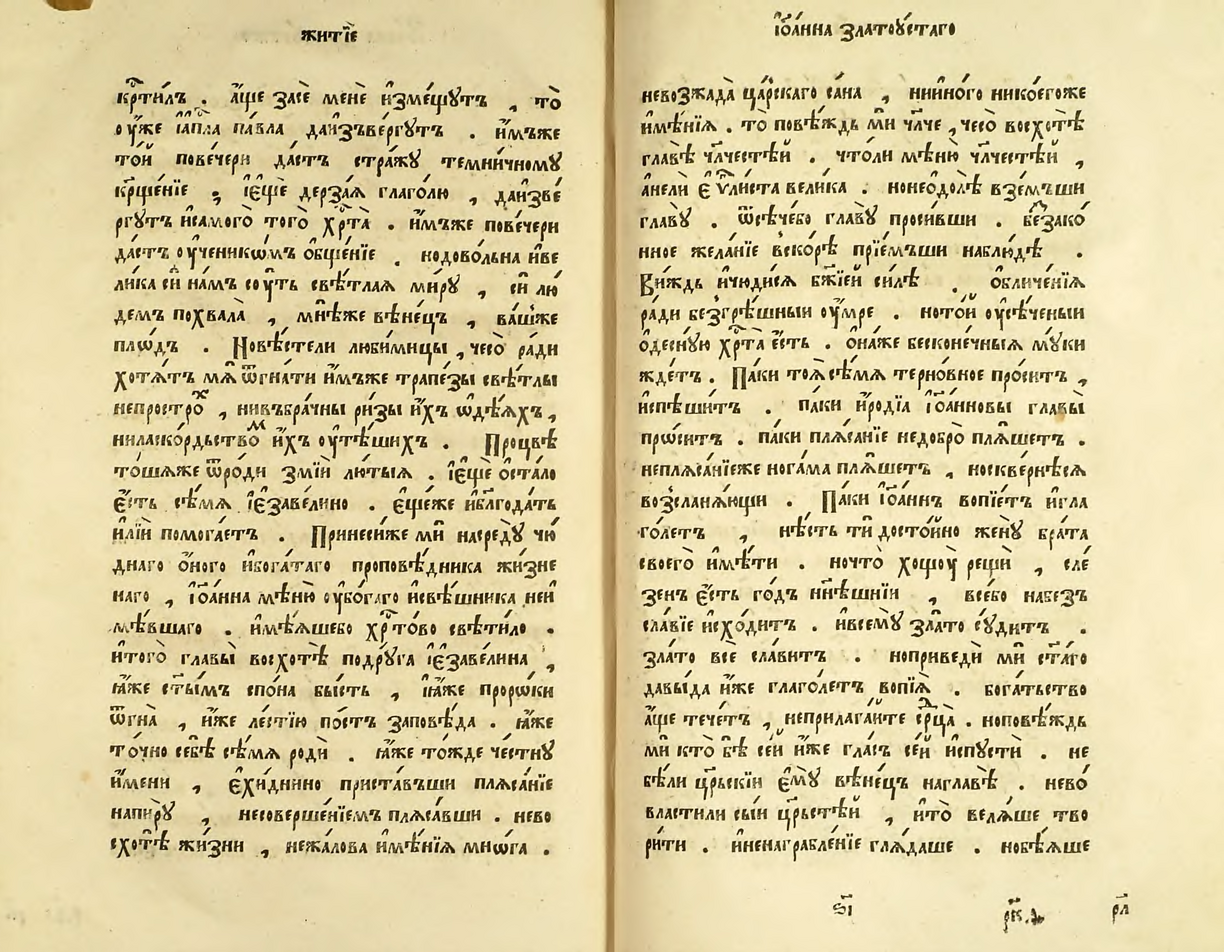 житїе
кр҃тилъ . а҆́ще засѐ менѐ и҆зме́щꙋтъ , то̀
оу҆́же і҆а҆п҃ла па́вла даи҆зъве́ргꙋтъ . и҆́мъже
то́й повече́ри да́стъ стра́жꙋ темни́чномꙋ
кр҃ще́нїе ; і҆є҆щѐ дерза́ѧ глаго́лю , даи҆зве́
ргꙋтъ и҆самого̀ того̀ хрⷭ҇та̀ . и҆́мъже повече́ри
да́стъ оу҆ченикѡ́мъ о҆бще́нїе . нодово́льна и҆ве
ли́ка сѝ на́мъ сꙋ́ть свѣ́тлаѧ ми́рꙋ , сѝ лю́
демъ похвала̀ , мнѣ́же вѣне́цъ , ва́шже
пло́дъ . Новѣ́стели люби́мицы , чесо̀ ра́ди
хотѧ́тъ мѧ̀ ѿгна́ти и҆́мъже трапе́зы свѣ́тлы
непростро́хъ , нивъбра́чны ри́зы и҆́хъ ѡ҆дѣ́ѧхъ ,
ниласко́рдьствомъ и҆́хъ оу҆тѣ́шихъ . Процвѣ
то́шѧже ѿро́ди змі́й лю́тыѧ . і҆є҆щѐ о҆ста́ло
є҆́сть сѣ́мѧ і҆є҆заве́лино . є҆ще́же и҆блгода́ть
и҆лїи помога́етъ . Принеси́же мѝ насредꙋ̀ чю́
днаго о҆́ного и҆бога́таго проповѣ́дника жи́зне
наго , і҆о҆а́нна мѣню̀ оу҆бо́гаго и҆свѣ́щника неи҆
мѣ́вшаго . и҆мѣ́ѧшебо хрⷭ҇то́во свѣти́ло .
и҆того̀ главы̀ восхотѣ̀ подрꙋ́га і҆є҆заве́лина ,
ꙗ҆́же ст҃ы́мъ спо́на бы́сть , і҆ꙗ҆́же проро́ки
ѿгна̀ , и҆́же ле́стїю по́стъ заповѣ́да . ꙗ҆́же
то́чно себѣ̀ сѣ́мѧ родѝ . ꙗ҆́же то́жде че́стнꙋ
и҆́мени , є҆хи́днино приста́въши плѧса́нїе
напи́рꙋ , несоверше́нїемъ плѧса́вши . нево
схотѣ̀ жи́зни , нежа́лова и҆мѣ́нїѧ мно́га .
і҆о҆а́нна златоꙋ́стаго
невозжада̀ ца́рскаго са́на , ниино́го нико́егоже
и҆мѣ́нїѧ . то повѣ́ждь мѝ чл҃че , чесо̀ восхотѣ̀
главѣ̀ чл҃честѣ́й . что́ли мѣню̀ чл҃честѣ́й ,
а҆́нели є҆ѵⷢ҇ли́ста вели́ка . нонеѻ҆долѣ̀ взе́мъши
главꙋ̀ . ѿсѣ́чебо главꙋ̀ проси́вши . беззако́
нное жела́нїе вско́рѣ прїе́мъши наблю́дѣ .
Ви́ждь и҆чюди́сѧ бж҃їей си́лѣ . о҆бличе́нїѧ
ра́ди безгрѣ́шныи оу҆́мре . ното́й оу҆сѣ́ченыи
о҆деснꙋ́ю хрⷭ҇та̀ є҆́сть . о҆на́же бесконе́чныѧ мꙋ́ки
жде́тъ . Па́ки тоѧ̀ сѣ́мѧ терно́вное про́ситъ ,
и҆спѣши́тъ . па́ки и҆родїа̀ і҆о҆а́нновы главы̀
про́ситъ . па́ки плѧса́нїе недобро̀ плѧ́шетъ .
неплѧса́нїеже нога́ма плѧ́шетъ , носкве́рнѣсѧ
возсланѧ́ющи . Па́ки і҆о҆а́ннъ вопїе́тъ и҆гла
го́летъ , нѣ́сть тѝ досто́йно женꙋ̀ бра́та
своего̀ и҆мѣ́ти . ночто̀ хощꙋ̀ рещѝ , сле́
зенъ є҆́сть го́дъ нн҃ѣшнїи , все́бо набезъ
сла́вїе и҆схо́дитъ . и҆всемꙋ̀ зла́то сꙋ́дитъ .
зла́то всѐ сла́витъ . ноприведѝ мѝ ст҃а́го
давы́да и҆́же глаго́летъ вопїѧ̀ . бога́тьство
а҆́ще тече́тъ , неприлага́йте срⷣца . ноповѣ́ждь
мѝ кто̀ бѣ̀ се́й и҆́же гла́съ се́й и҆спꙋстѝ . не
бѣ́ли црⷭ҇кїи є҆мꙋ̀ вѣне́цъ наглавѣ̀ . небо́
властили сы́и црⷭ҇твїи , и҆то̀ велѧ́ше тво
ри́ти . и҆ненаграбле́нїе глѧ́даше . нобѣ́ѧше
ѕ҃і
рк҃.
рл